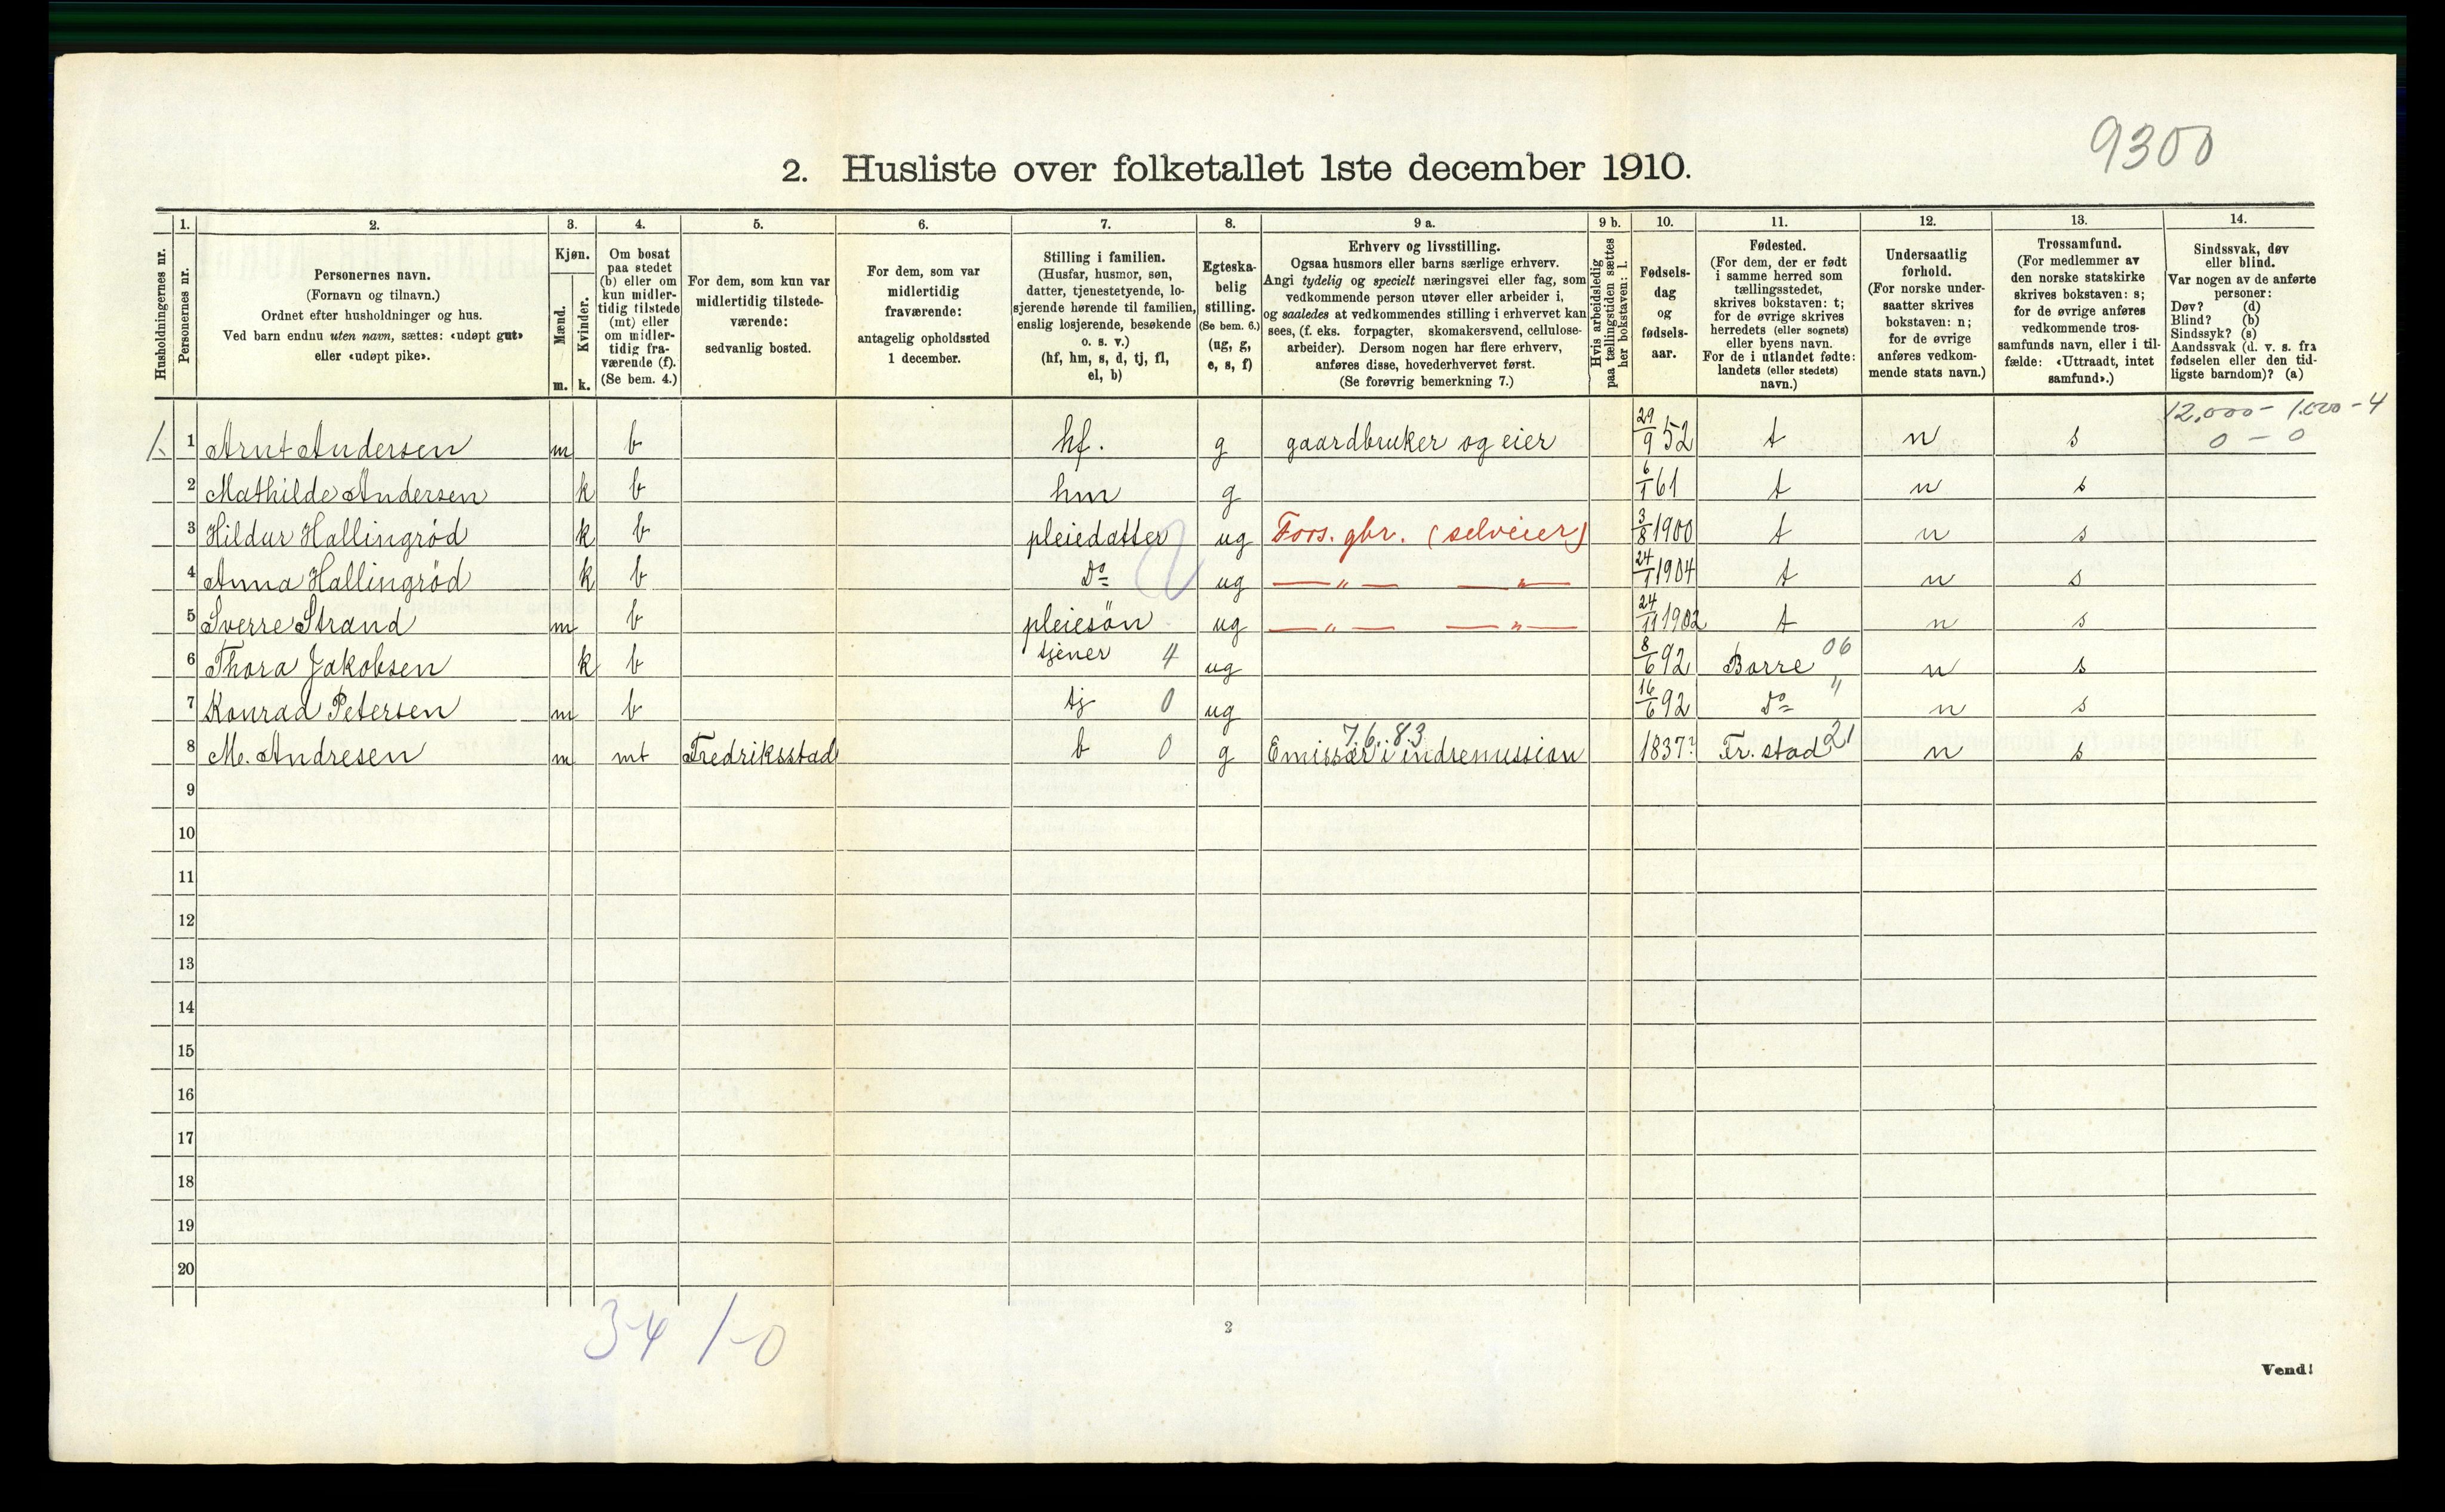 9300
2. Husliste over folketallet 1ste december 1910.
1. 2. 3. 4. 5. 6. 7. 8. 9 a. 9 b. 10. 11. 12. 13. 14.
Husholdningernes nr.
Personernes nr.
Personernes navn.
(Fornavn og tilnavn.)
Ordnet efter husholdninger og hus.
Ved barn endnu uten navn, sættes: «udøpt gut»
eller «udøpt pike».
Kjøn.
Mænd.
Kvinder.
m. k.
Om bosat
paa stedet
(b) eller om
kun midler-
tidig tilstede
(mt) eller
om midler-
tidig fra-
værende (f).
(Se bem. 4.)
For dem, som kun var
midlertidig tilstede-
værende:
sedvanlig bosted.
For dem, som var
midlertidig
fraværende:
antagelig opholdssted
1 december.
Stilling i familien.
(Husfar, husmor, søn,
datter, tjenestetyende, lo-
sjerende hørende til familien,
enslig losjerende, besøkende
o. s. v.)
(hf, hm, s, d, tj, fl,
el, b)
Egteska-
belig
stilling.
(Se bem. 6.)
(ug, g,
e, s, f)
Erhverv og livsstilling.
Ogsaa husmors eller barns særlige erhverv.
Angi tydelig og specielt næringsvei eller fag, som
vedkommende person utøver eller arbeider i,
og saaledes at vedkommendes stilling i erhvervet kan
sees, (f. eks. forpagter, skomakersvend, cellulose-
arbeider). Dersom nogen har flere erhverv,
anføres disse, hovederhvervet først.
(Se forøvrig bemerkning 7.)
Hvis arbeidsledig
paa tællingstiden sættes
her bokstaven: l.
Fødsels-
dag
og
fødsels-
aar.
Fødested.
(For dem, der er født
i samme herred som
tællingsstedet,
skrives bokstaven: t;
for de øvrige skrives
herredets (eller sognets)
eller byens navn.
For de i utlandet fødte:
landets (eller stedets)
navn.)
Undersaatlig
forhold.
(For norske under-
saatter skrives
bokstaven: n;
for de øvrige
anføres vedkom-
mende stats navn.)
Trossamfund.
(For medlemmer av
den norske statskirke
skrives bokstaven: s;
for de øvrige anføres
vedkommende tros-
samfunds navn, eller i til-
fælde: «Uttraadt, intet
samfund».)
Sindssvak, døv
eller blind.
Var nogen av de anførte
personer:
Døv? (d)
Blind? (b)
Sindssyk? (s)
Aandssvak (d. v. s. fra
fødselen eller den tid-
ligste barndom)? (a)
12,000 - 1.000 - 4
1. 1 Arnt Andersen m b hf. g gaardbruker og eier 29/9 52 t n s 0 - 0
2 Mathilde Andersen k b hm g 6/1 61 t n s
3 Hildur Hallingrød k b pleiedatter ug Fors. gbr. (selveier) 3/8 1900 t n s
4 Anna Hallingrød k b Do ug — " — — " — 24/1 1904 t n s
5 Sverre Strand m b pleiesön ug — " — — " — 24/11 1902 t n s
6 Thora Jakobsen k b tjener 4 ug 8/6 92 Borre 06 n s
7 Konrad Petersen m b tj 0 ug 16/6 92 Do " n s
76.83
8 M. Andresen m mt Fredriksstad b 0 g Emissær i indremission 1837? Fr. stad 21 n s
9
10
11
12
13
14
15
16
17
18
19
20
3-4 1-0
2
Vend!